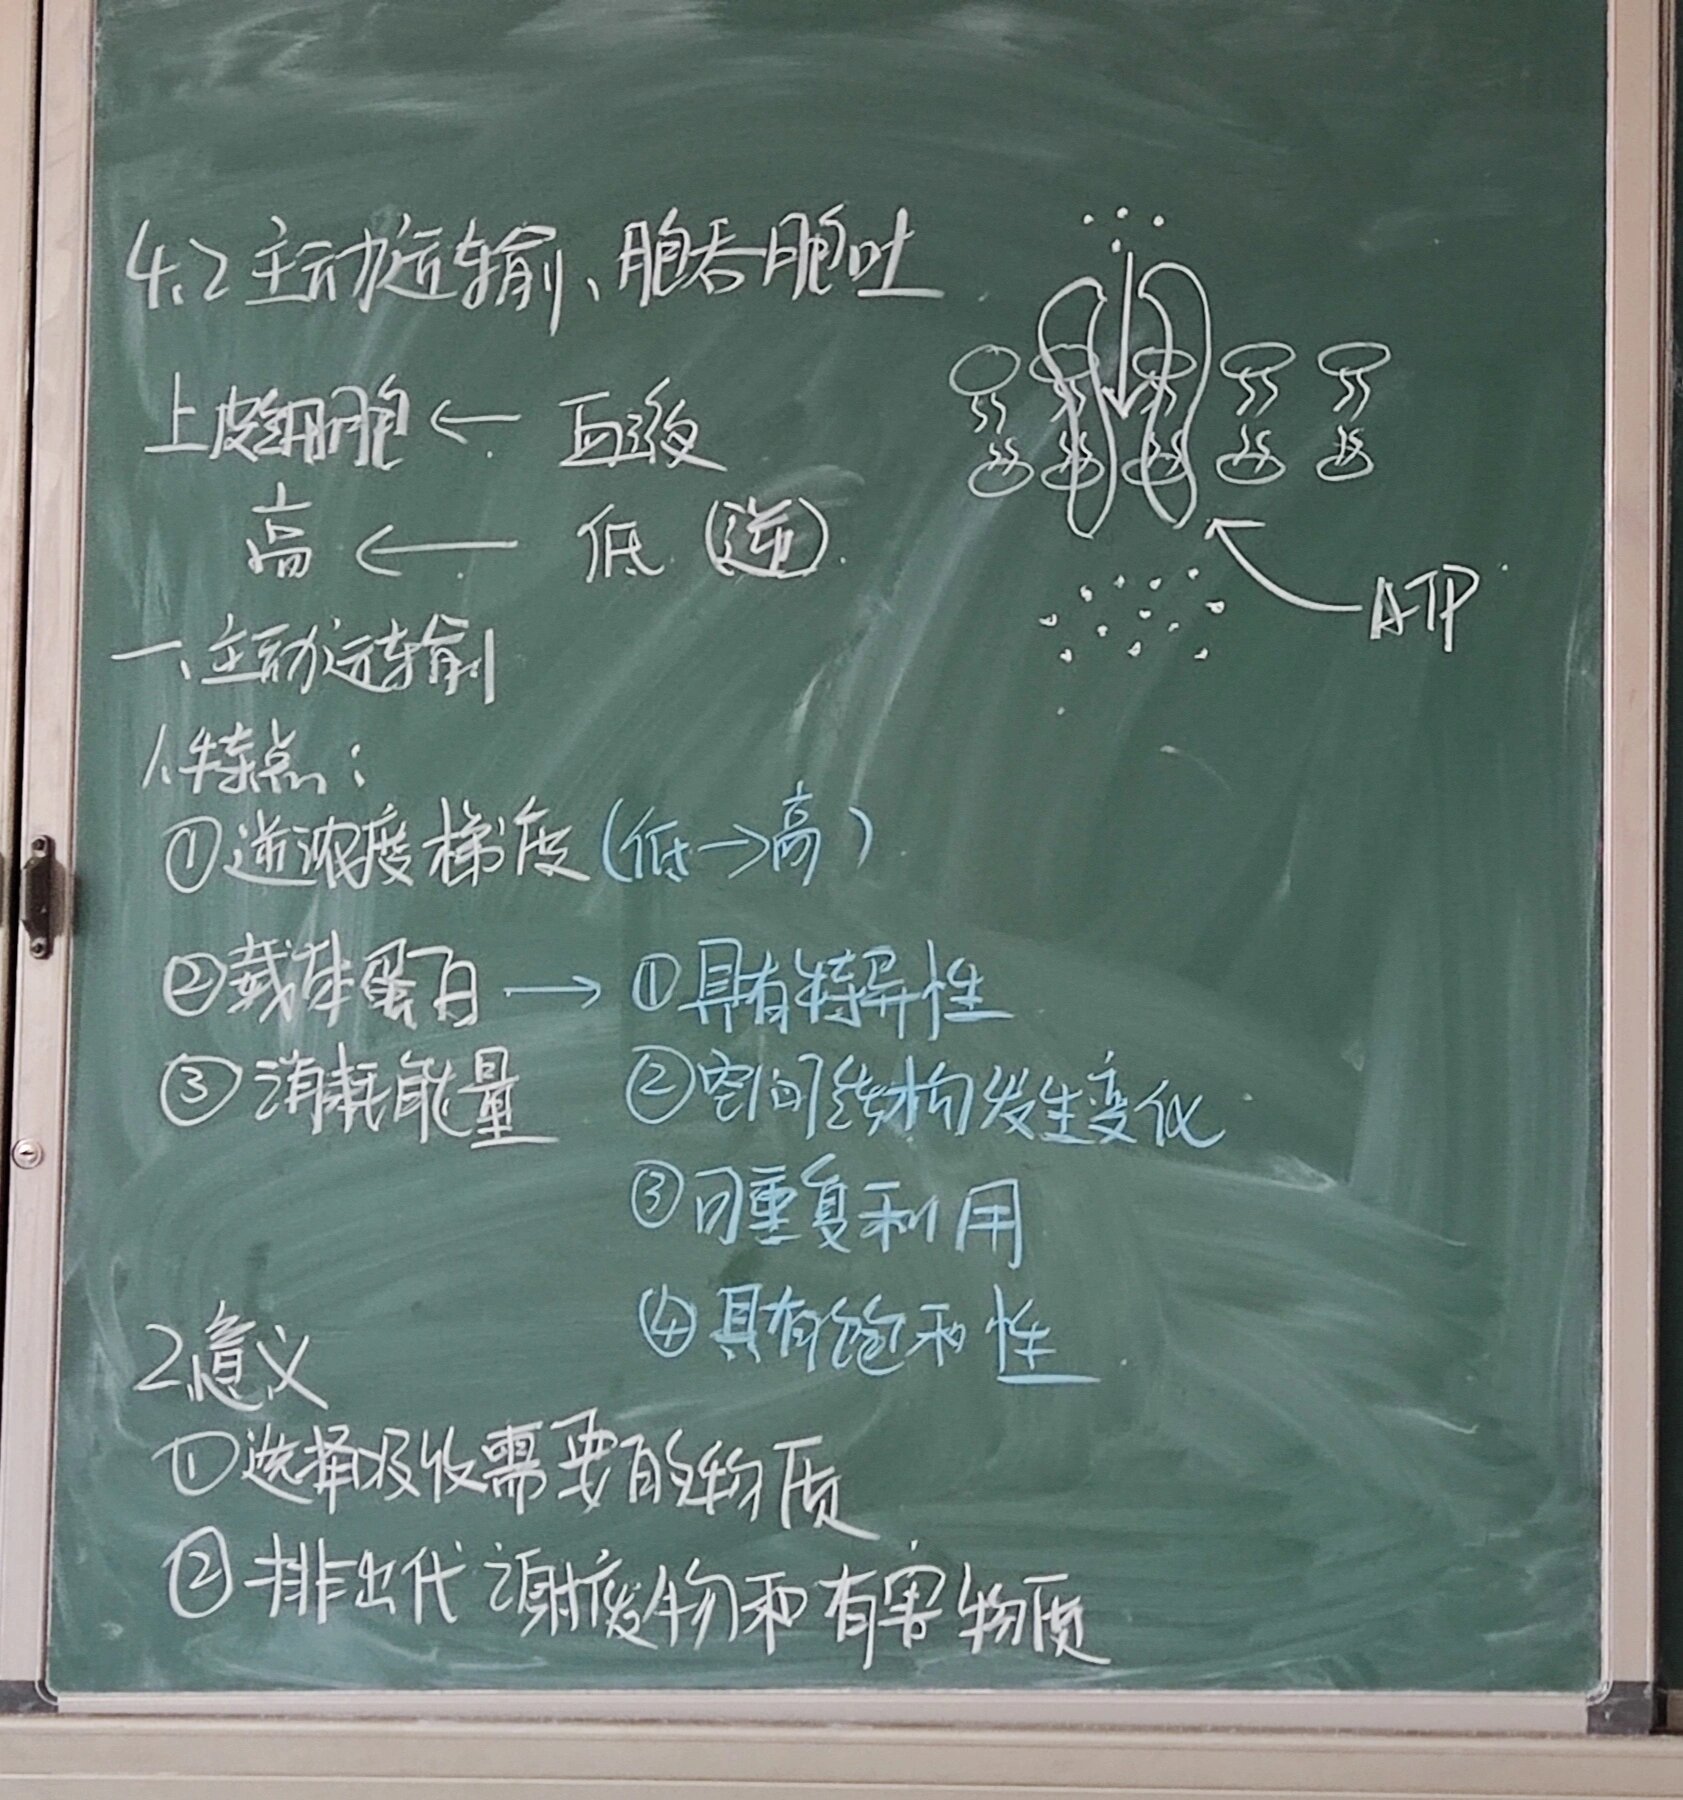 4.2 主动运输、胞吞胞吐
上皮细胞 ← 血液
高 ← 低 (逆)
ATP
一、主动运输
1.特点：
①逆浓度梯度(低→高)
②载体蛋白 → ①具有特异性
③消耗能量 ②空间结构发生变化
③可重复利用
④具有饱和性
2.意义
①选择吸收需要的物质
②排出代谢废物和有害物质